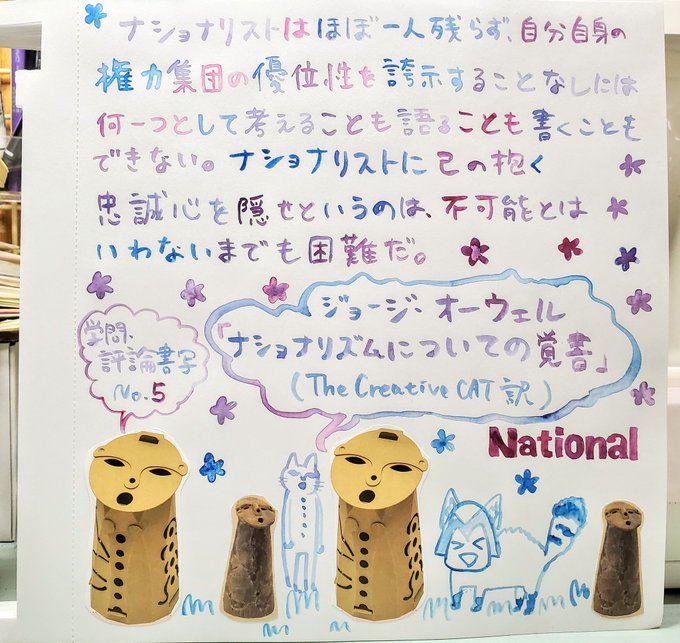 ナショナリストはほぼ一人残らず、自分自身の
権力集団の優位性を誇示することなしには
何一つとして考えることも語ることも書くことも
できない。ナショナリストに己の抱く
忠誠心を隠せというのは、不可能とは
いわないまでも困難だ。
ジョージ・オーウェル
「ナショナリズムについての覚書」
(The Creative CAT 訳)
学問、
評論書写
No.5
National